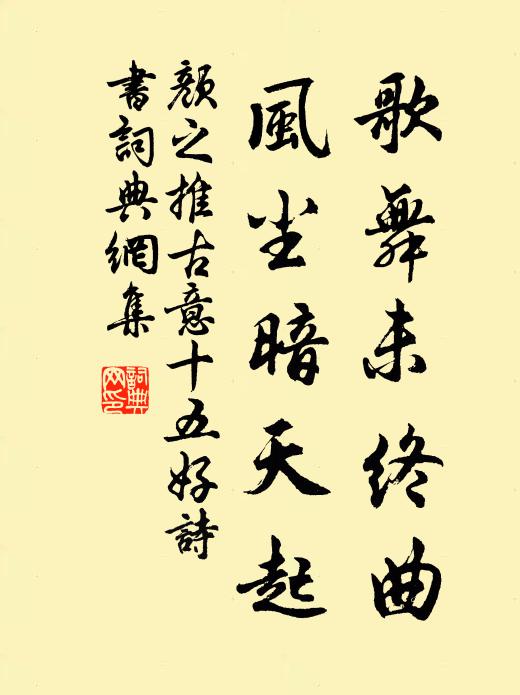 歌舞未终曲
風尘暗天起
顔之推古意十五好詩
書詞典網集
詞典网印